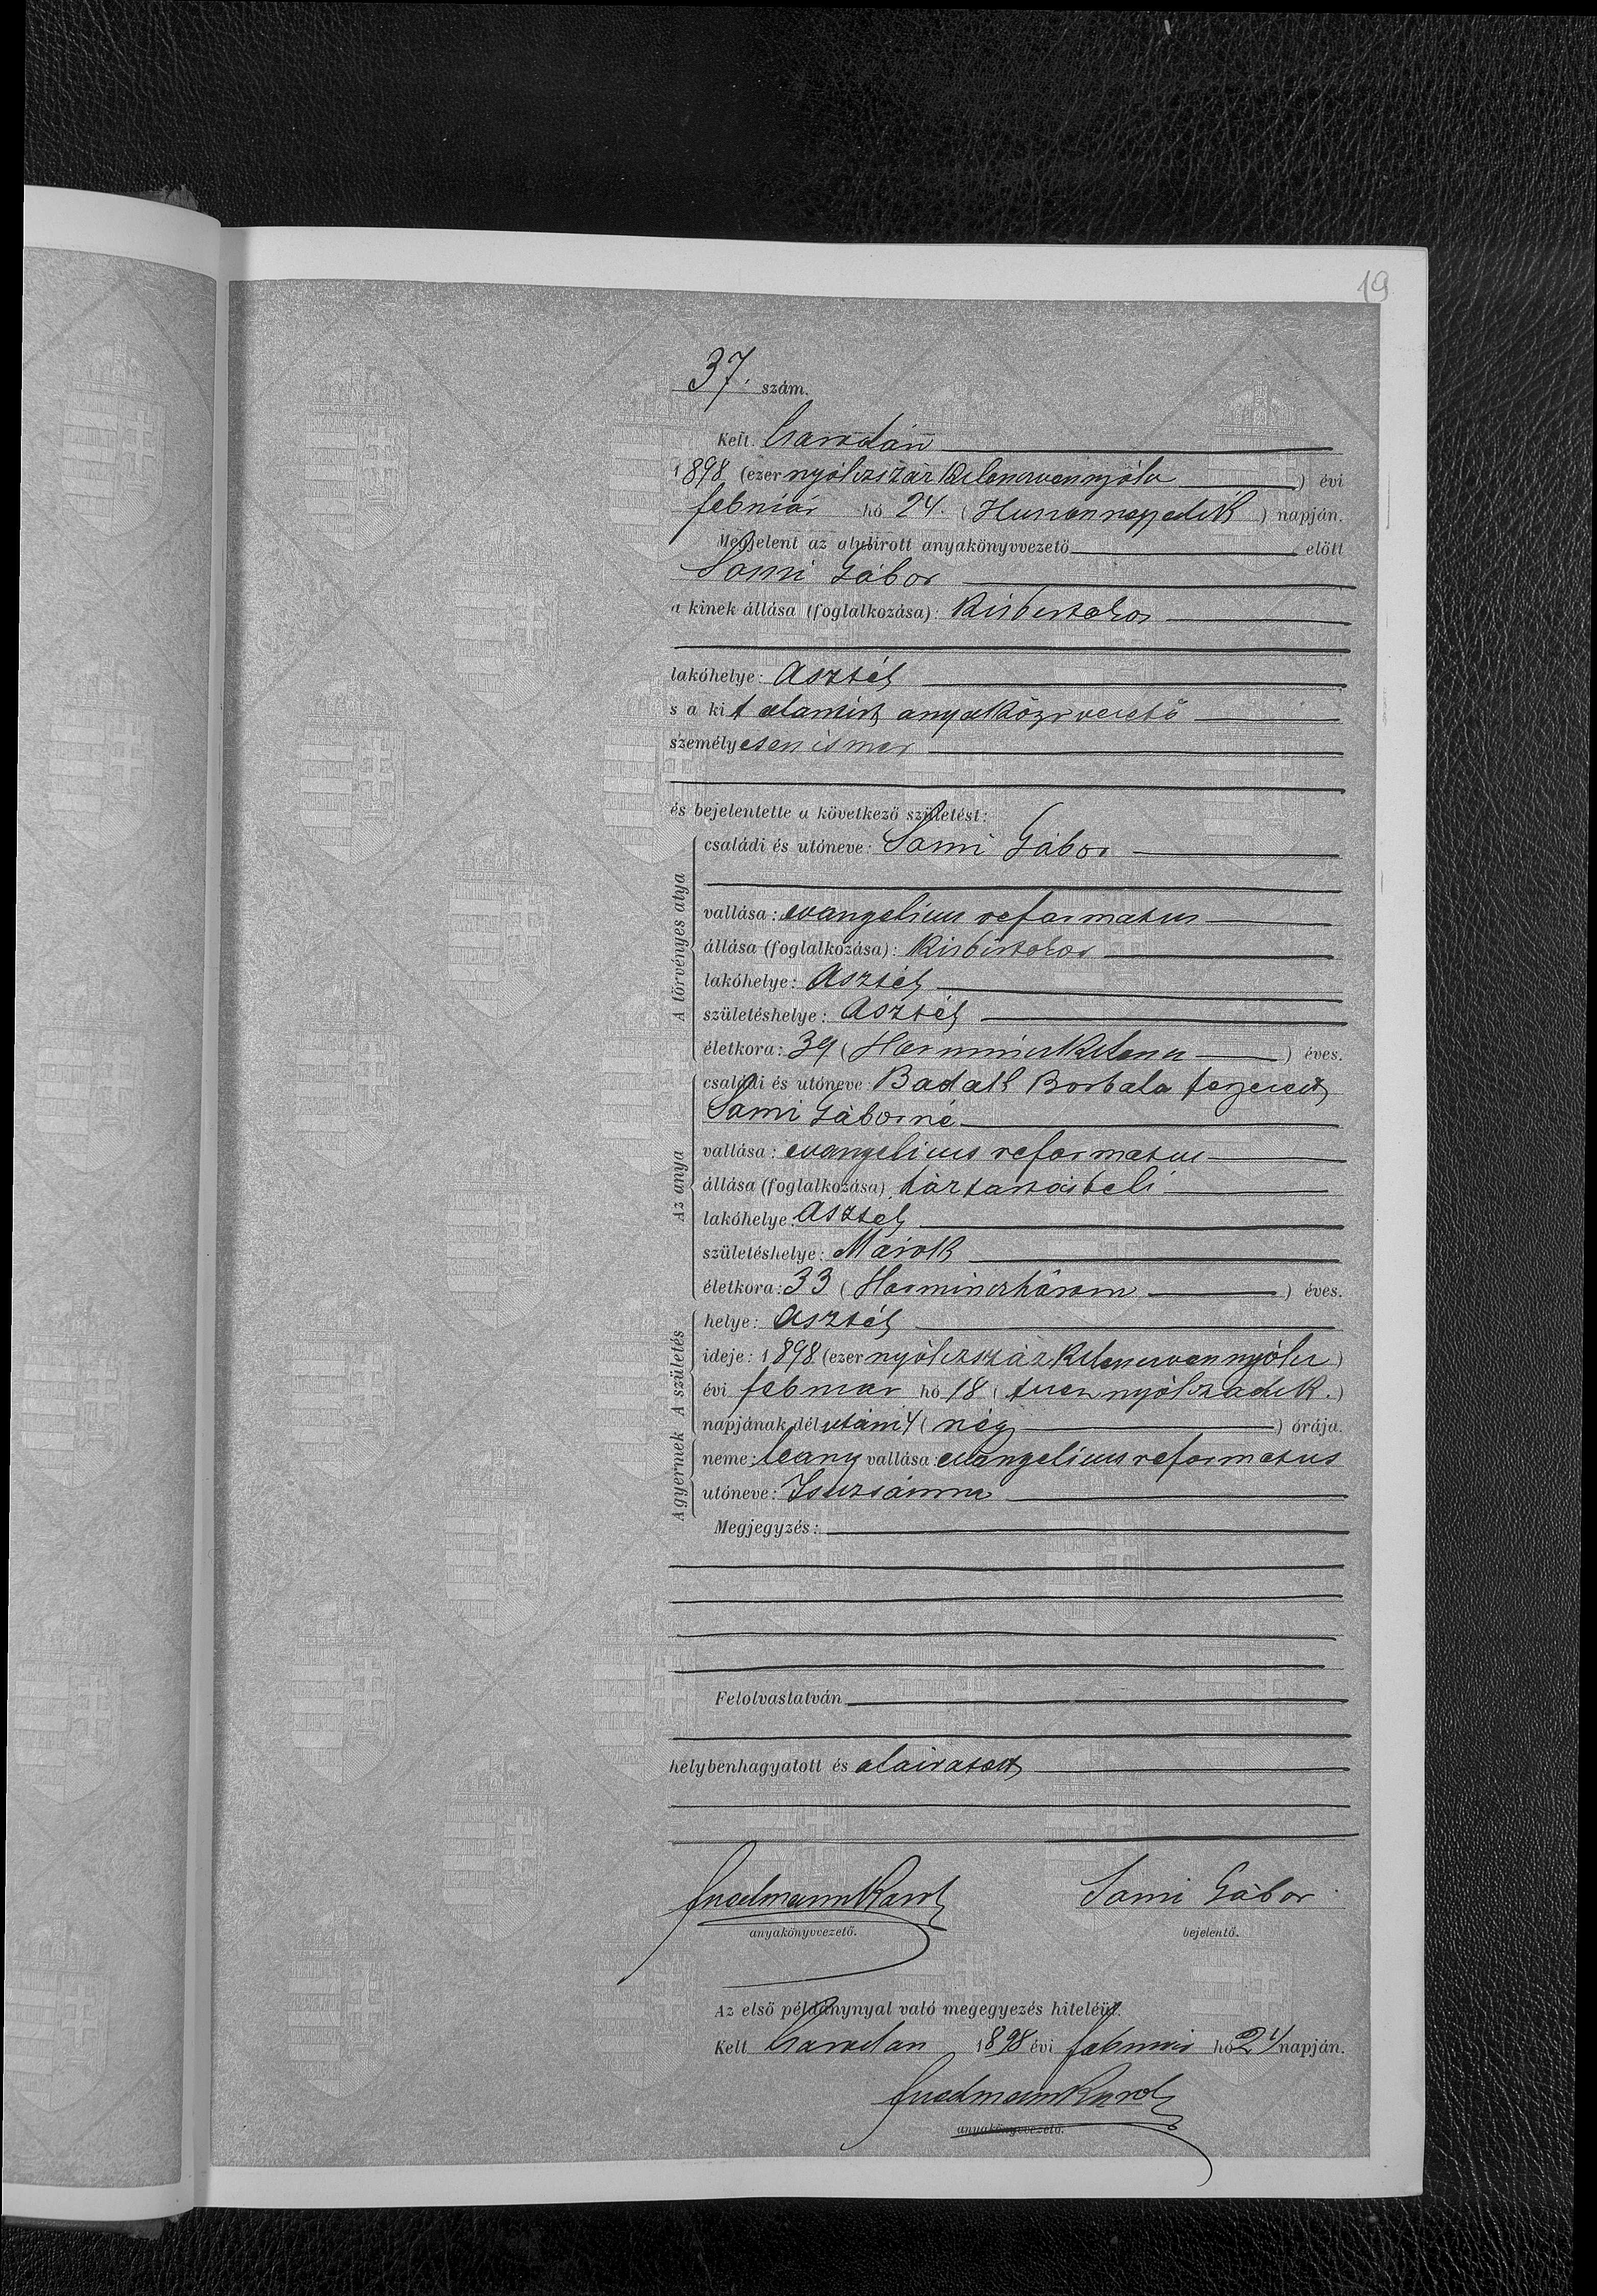 19
37. szám.
Kelt Csarodán
1898 (ezer nyólczszáz kilenczvennyólcz) évi
február hó 24. (Huszonnegyedik) napján.
Megjelent az alulirott anyakönyvvezető előtt
Sami Gábor
a kinek állása (foglalkozása): Kisbirtokos
lakóhelye: Asztély
s a kit alamirt anyakönyvvezető
személyesen ismer
és bejelentette a következő születést:
A törvényes atya
családi és utóneve: Sami Gábor
vallása: evangelicus reformatus
állása (foglalkozása): Kisbirtokos
lakóhelye: Asztély
születéshelye: Asztély
életkora: 39 (Harminczkilencz) éves.
Az anya
családi és utóneve: Badak Borbala
Sami Gáborné
vallása: evangelicus reformatus
állása (foglalkozása) háztartásbeli
lakóhelye: Asztely
születéshelye: Márok
életkora: 33 (Harminczhárom) éves.
A születés
helye: Asztély
ideje: 1898 (ezer nyólczszáz kilenczvennyólcz)
évi februar hó 18 (tizennyólczadik.)
napjának délutáni 4 (négy) órája.
A gyermek
neme: leany vallása: evangelicus reformatus
utóneve: Zsuzsánna
Megjegyzés:
Felolvastatván
helybenhagyatott és aláiratott
Sami Gábor
anyakönyvvezető. bejelentő.
Az első példánynyal való megegyezés hiteléül.
Kelt Csarodan 1898 évi február hó 24 napján.
anyakönyvvezető.